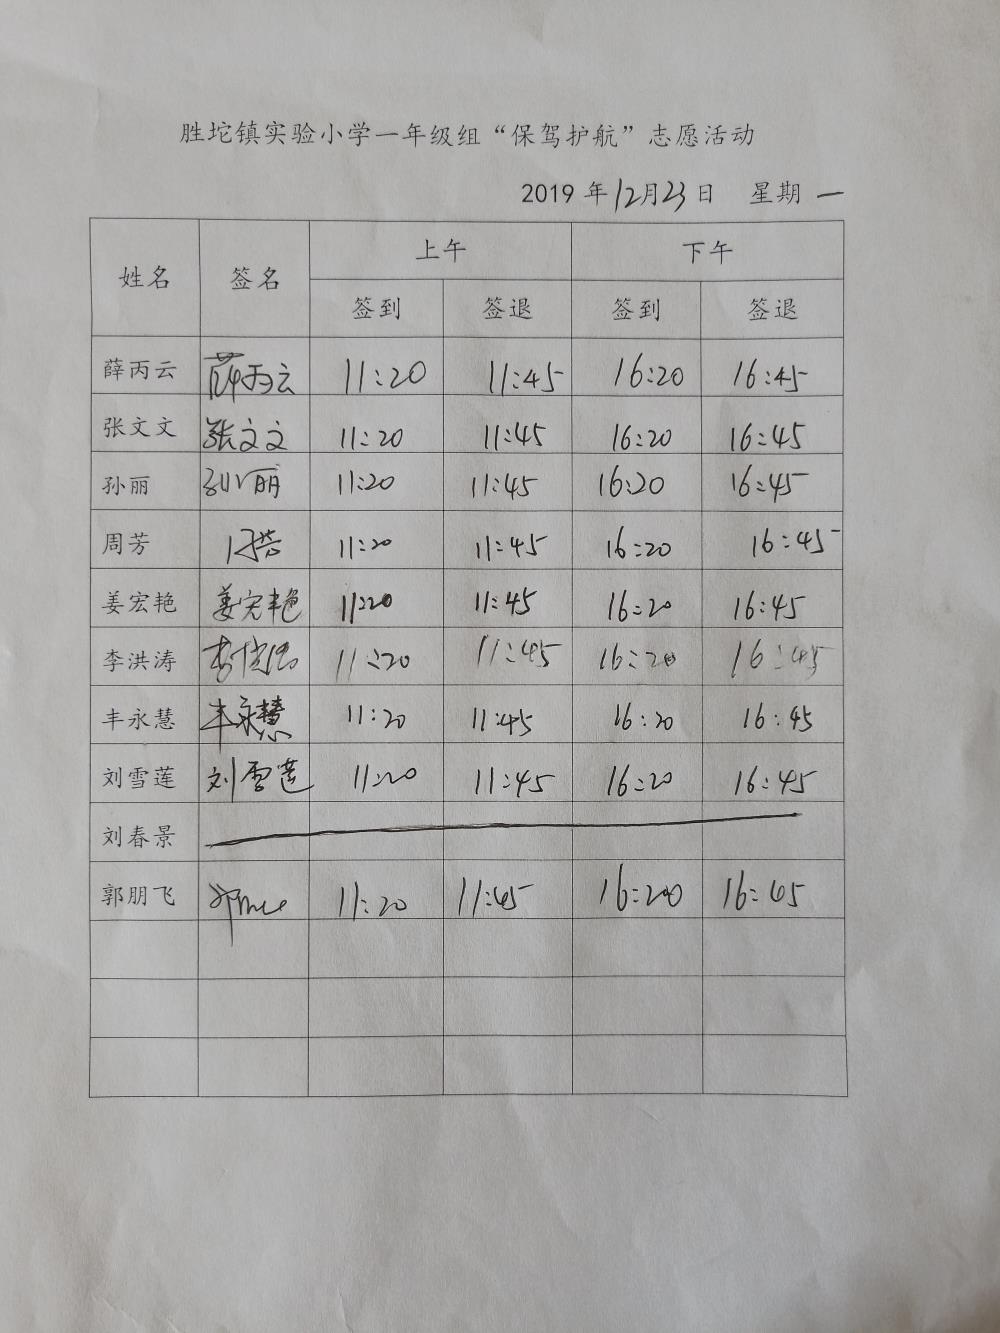 胜坨镇实验小学一年级组“保驾护航”志愿活动
2019 年 12月23日 星期一
姓名 签名 上午 下午
签到 签退 签到 签退
薛丙云 薛丙云 11:20 11:45 16:20 16:45
张文文 张文文 11:20 11:45 16:20 16:45
孙丽 孙丽 11:20 11:45 16:20 16:45
周芳 11:20 11:45 16:20 16:45
姜宏艳 姜宏艳 11:20 11:45 16:20 16:45
李洪涛 李洪涛 11:20 11:45 16:20 16:45
丰永慧 丰永慧 11:20 11:45 16:20 16:45
刘雪莲 刘雪莲 11:20 11:45 16:20 16:45
刘春景
郭朋飞 11:20 11:45 16:20 16:45